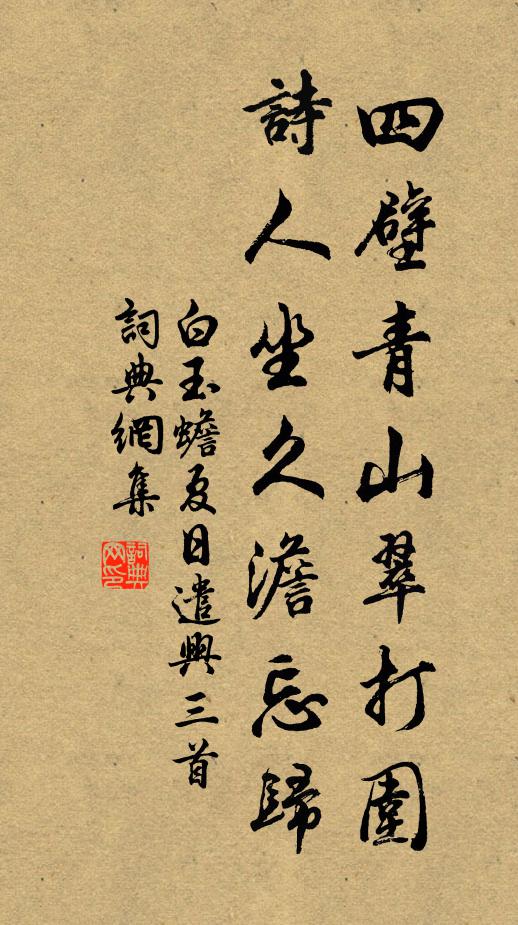 四壁青山翠打圍
詩人坐久澹忘歸
白玉蟾夏日遣興三首
詞典網集
詞典网印